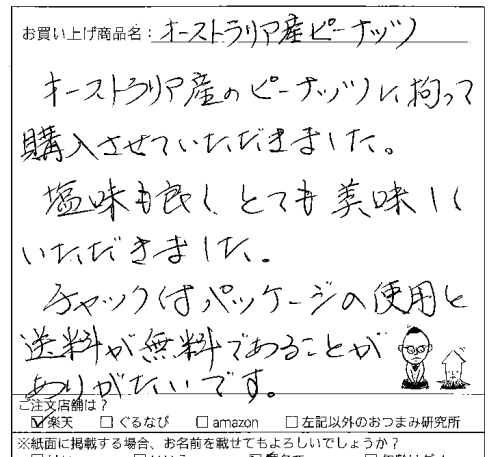 お買い上げ商品名：オーストラリア産ピーナッツ
オーストラリア産のピーナッツに拘って
購入させていただきました。
塩味も良く、とても美味しく
いただきました。
チャック付パッケージの使用と
送料が無料であることが
ありがたいです。
ご注文店舗は？
☑楽天 □ぐるなび □amazon □左記以外のおつまみ研究所
※紙面に掲載する場合、お名前を載せてもよろしいでしょうか？